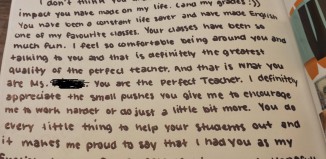 I don't think you
impact you have made on my life. (and my grades :))
You have been a constant life saver and have made English
one of my favourite classes. Your classes have been so
much fun. I feel so comfortable being around you and
talking to you and that is definitely the greatest
quality of the perfect teacher. And that is what you
are Ms. You are the perfect Teacher. I definitley
appreciate the small pushes you give me to encourage
me to work harder or do just a little bit more. You do
every little thing to help your students out and
it makes me proud to say that I had you as my